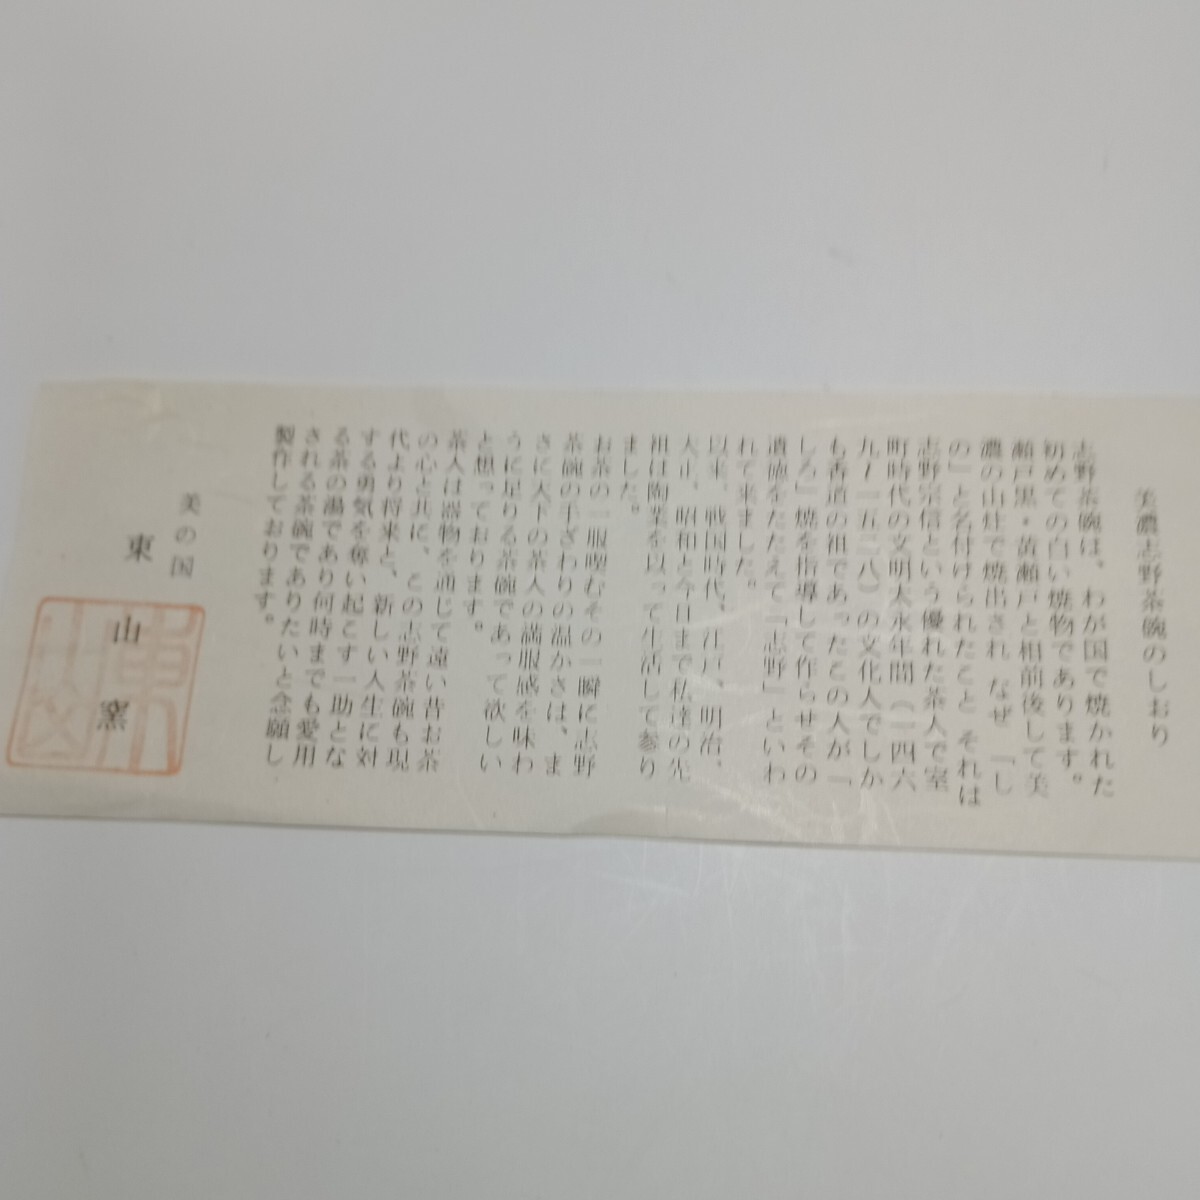 美濃志野茶碗のしおり
志野茶碗は、わが国で焼かれた
初めての白い焼物であります。
瀬戸黒・黄瀬戸と相前後して美
濃の山灶で焼出され なぜ 「し
の」と名付けられたこと それは
志野宗信という優れた茶人で室
町時代の文明大永年間(一四六
九ー一五二八)の文化人でしか
も香道の祖であったこの人が「
しろ」焼を指導して作らせその
遺徳をたたえて「志野」といわ
れて来ました。
以来、戦国時代、江戸、明治、
大正、昭和と今日まで私達の先
祖は陶業を以って生活して参り
ました。
お茶の一服喫むその一瞬に志野
茶碗の手ざわりの温かさは、ま
さに天下の茶人の満服感を味わ
うに足りる茶碗であって欲しい
と想っております。
茶人は器物を通じて遠い昔お茶
の心と共に、この志野茶碗も現
代より将来と、新しい人生に対
する勇気を奪い起こす一助とな
る茶の湯であり何時までも愛用
される茶碗でありたいと念願し
製作しております。
美の国
東山窯
東山